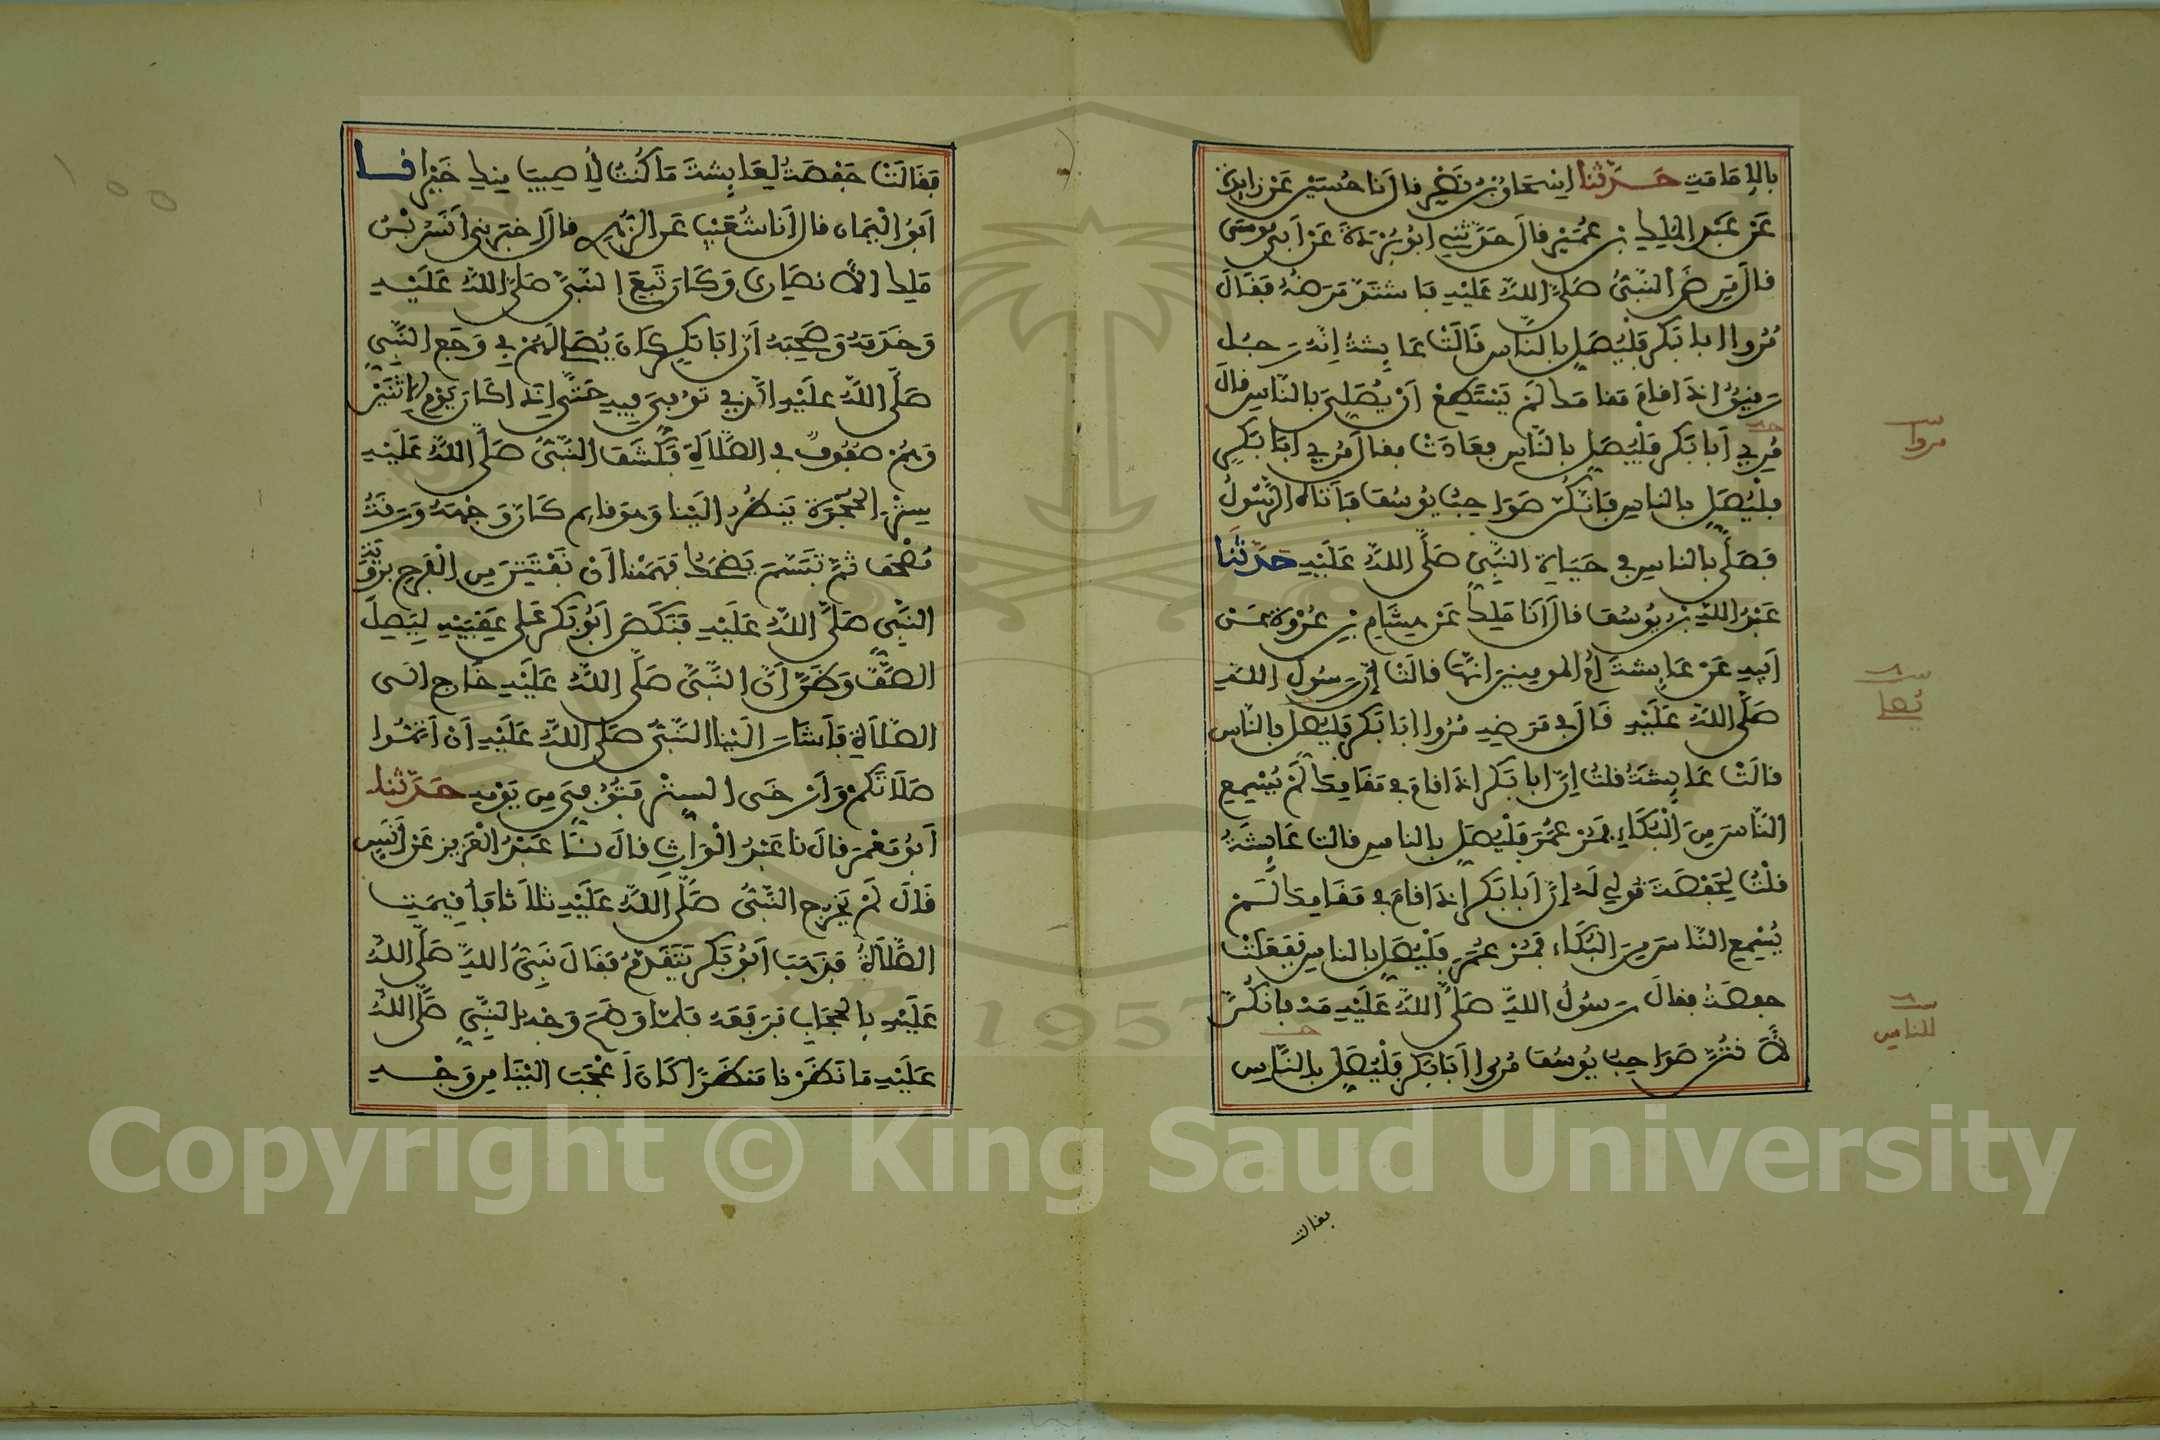 بالإمامة حَدَّثَنَا إسحاق بن نَصْرٍ قال أنا حُسَيْن عَن زَائِدَة
عَن عَبْدِ الْمَلِكِ بنِ عُمَيْرٍ قال حَدَّثَنِي أبُو بُرْدَةَ عَن أبِي مُوسَى
قال مَرِضَ النَّبِيُّ صَلَّى اللَّهُ عَلَيْهِ فاشتَدَّ مَرَضُهُ فَقَالَ
مُرُوا أبا بَكْرٍ فَلْيُصَلِّ بالنَّاسِ قَالَتْ عَايِشَةُ إنَّهُ رَجُل
رَقِيقٌ إذَا قَامَ مَقامَكَ لَمْ يَسْتَطِعْ أنْ يُصَلِّيَ بالنَّاسِ قالَ
مُرِي أبَا بَكْرٍ فَلْيُصَلِّ بالنَّاسِ فَعَادَتْ فقال مُرِي أبَا بَكْرٍ
فَلْيُصَلِّ بالناس فَإنَّكُنَّ صَوَاحِبُ يُوسُفَ فَأتَاهُ الرَّسُولُ
فَصَلَّى بالناس في حَيَاةِ النَّبِيِّ صَلَّى اللَّهُ عَلَيْهِ حَدَّثَنَا
عَبْدُ اللهِ بنُ يُوسُفَ قال أنَا مَلِكٌ عَن هِشَامِ بنِ عُرْوَةَ عَنْ
أبِيهِ عَنْ عَايِشَةَ أُمِّ المومِنِينَ أنَّهَا قالَتْ إنَّ رَسُولَ اللهِ
صَلَّى اللَّهُ عَلَيْهِ قَالَ في مَرَضِهِ مُرُوا أبَا بَكْرٍ فَلْيُصَلِّ بالنَّاسِ
قالَتْ عَايِشَةُ قلتُ إنَّ أبا بَكْرٍ إذَا قامَ في مَقَامِكَ لَمْ يُسْمِعِ
النَّاسَ مِنَ الْبُكَاءِ فَمُرْ عُمَرَ فَلْيُصَلِّ بالناسِ قالت عَايِشَةُ
قلْتُ لِحَفْصَةَ قُولِي لَهُ إنَّ أبا بَكْرٍ إذَا قامَ في مَقَامِكَ لَمْ
يُسْمِعِ النَّاسَ مِنَ البُكَاءِ فَمُرْ عُمَرَ فَلْيُصَلِّ بالناسِ فَفَعَلَتْ
حفصَةُ فقالَ رَسُولُ اللهِ صَلَّى اللَّهُ عَلَيْهِ مَهْ فإنَّكُنَّ
لَأَنتُنَّ صَوَاحِبُ يُوسُفَ مُرُوا أبَا بَكْرٍ فَلْيُصَلِّ بالنَّاسِ
مروا
للناس
فقالت
فَقَالَتْ حَفْصَةُ لِعَايِشَةَ مَا كُنْتُ لِأُصِيبَ مِنكِ خَيْرًا نا
أبُو الْيَمَانِ قال أنَا شُعَيْبٌ عَنِ الزُّهْرِي قال أخبَرَنِي أنَسُ بْنُ
مَلِكٍ الأنصَارِي وَكَانَ تَبِعَ النَّبِيَّ صَلَّى اللَّهُ عَلَيْهِ
وَخَدَمَهُ وَصَحِبَهُ أنَّ أبَا بَكْرٍ كَانَ يُصَلِّي لَهُمْ فِي وَجَعِ النَّبِيِّ
صَلَّى اللَّهُ عَلَيْهِ الَّذِي تُوُفِّيَ فِيهِ حَتَّى إذَا كَانَ يَوْمُ الِاثْنَيْنِ
وَهُمْ صُفُوفٌ في الصَّلَاةِ فَكَشَفَ النَّبِيُّ صَلَّى اللَّهُ عَلَيْهِ
سِتْرَ الْحُجْرَةِ يَنظُرُ إلَيْنَا وَهُوَ قايِم كَأنَّ وَجْهَهُ وَرَقَةُ
مُصْحَفٍ ثُمَّ تَبَسَّمَ يَضْحَكُ فَهَمَمْنَا أنْ نَفْتَتِنَ مِنَ الْفَرَحِ بِرُؤْيَةِ
النَّبِيِّ صَلَّى اللَّهُ عَلَيْهِ فَنَكَصَ أبُو بَكْرٍ عَلَى عَقِبَيْهِ لِيَصِلَ
الصَّفَّ وَظَنَّ أنَّ النَّبِيَّ صَلَّى اللَّهُ عَلَيْهِ خَارِج إلَى
الصَّلَاةِ فَأشَارَ إلَيْنَا النَّبِيُّ صَلَّى اللَّهُ عَلَيْهِ أنْ أتِمُّوا
صَلَاتَكُمْ وَأرْخَى السِّتْرَ فَتُوُفِّيَ مِن يَوْمِهِ حَدَّثَنَا
أبُو مَعْمَرٍ قال نا عَبْدُ الْوَارِثِ قالَ نَا عَبْدُ الْعَزِيزِ عَنْ أنَسٍ
قَالَ لَمْ يَخْرُجِ النَّبِيُّ صَلَّى اللَّهُ عَلَيْهِ ثَلَاثًا فَأُقِيمَتِ
الصَّلَاةُ فَذَهَبَ أبُو بَكْرٍ يَتَقَدَّمُ فَقَالَ نَبِيُّ اللهِ صَلَّى اللَّهُ
عَلَيْهِ بِالْحِجَابِ فَرَفَعَهُ فَلَمَّا وَضَحَ وَجْهُ النَّبِيِّ صَلَّى اللَّهُ
عَلَيْهِ مَا نَظَرْنَا مَنظَرًا كَانَ أعْجَبَ إلَيْنَا مِنْ وَجْهِ
Copyright © King Saud University
1957